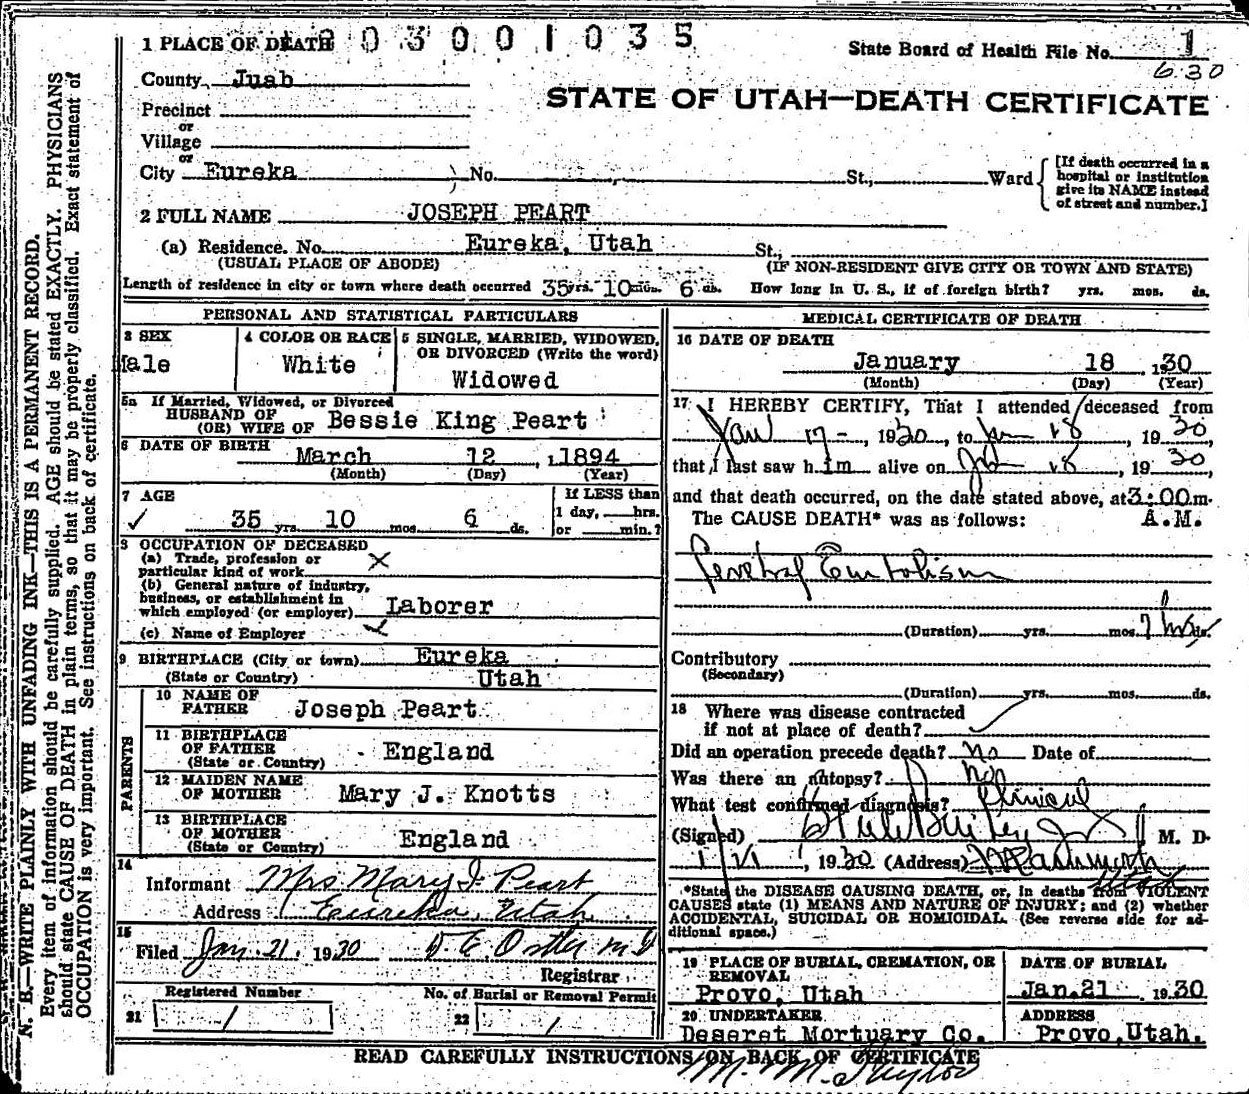 1 PLACE OF DEATH 30 3 0 0 1 0 3 5
State Board of Health File No. 1
630
County Juab
STATE OF UTAH—DEATH CERTIFICATE
Precinct
or
Village
or
City Eureka No. St., Ward
[If death occurred in a
hospital or institution
give its NAME instead
of street and number.]
2 FULL NAME JOSEPH PEART
(a) Residence. No. Eureka, Utah St.,
(USUAL PLACE OF ABODE) (IF NON-RESIDENT GIVE CITY OR TOWN AND STATE)
Length of residence in city or town where death occurred 35 yrs. 10 mos. 6 ds. How long in U. S., if of foreign birth? yrs. mos. ds.
PERSONAL AND STATISTICAL PARTICULARS
3 SEX
Male
4 COLOR OR RACE
White
5 SINGLE, MARRIED, WIDOWED,
OR DIVORCED (Write the word)
Widowed
5a If Married, Widowed, or Divorced
HUSBAND OF
(OR) WIFE OF Bessie King Peart
6 DATE OF BIRTH
March 12 , 1894
(Month) (Day) (Year)
7 AGE
35 yrs. 10 mos. 6 ds.
If LESS than
1 day, hrs.
or min.?
8 OCCUPATION OF DECEASED
(a) Trade, profession or
particular kind of work
(b) General nature of industry,
business, or establishment in
which employed (or employer) Laborer
(c) Name of Employer
9 BIRTHPLACE (City or town) Eureka
(State or Country) Utah
PARENTS
10 NAME OF
FATHER Joseph Peart
11 BIRTHPLACE
OF FATHER
(State or Country) England
12 MAIDEN NAME
OF MOTHER Mary J. Knotts
13 BIRTHPLACE
OF MOTHER
(State or Country) England
14
Informant Mrs Mary J Peart
Address Eureka, Utah
15
Filed Jan. 21. 1930 M D
Registrar
Registered Number
21
No. of Burial or Removal Permit
22
MEDICAL CERTIFICATE OF DEATH
16 DATE OF DEATH
January 18 , 1930
(Month) (Day) (Year)
17 I HEREBY CERTIFY, That I attended deceased from
Jan 17 , 1930, to Jan 18 , 1930,
that I last saw him alive on Jan 18 , 1930,
and that death occurred, on the date stated above, at 3:00 m.
The CAUSE DEATH* was as follows: A.M.
Cerebral Embolism
(Duration) yrs. mos. 7 hrs ds.
Contributory
(Secondary)
(Duration) yrs. mos. ds.
18 Where was disease contracted
if not at place of death?
Did an operation precede death? no Date of
Was there an autopsy? no
What test confirmed diagnosis? Clinical
(Signed) M. D.
1/21 , 1930 (Address)
*State the DISEASE CAUSING DEATH, or, in deaths from VIOLENT
CAUSES state (1) MEANS AND NATURE OF INJURY; and (2) whether
ACCIDENTAL, SUICIDAL OR HOMICIDAL. (See reverse side for ad-
ditional space.)
19 PLACE OF BURIAL, CREMATION, OR
REMOVAL
Provo, Utah
DATE OF BURIAL
Jan. 21 . 1930
20 UNDERTAKER
Deseret Mortuary Co.
ADDRESS
Provo, Utah.
READ CAREFULLY INSTRUCTIONS ON BACK OF CERTIFICATE
N. B.—WRITE PLAINLY WITH UNFADING INK—THIS IS A PERMANENT RECORD.
Every item of information should be carefully supplied. AGE should be stated EXACTLY. PHYSICIANS
should state CAUSE OF DEATH in plain terms, so that it may be properly classified. Exact statement of
OCCUPATION is very important. See instructions on back of certificate.